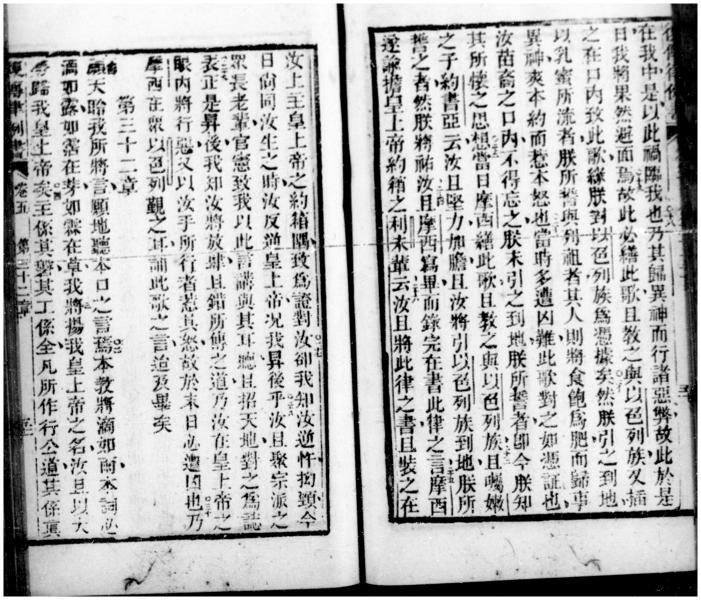 在我中是以此禍臨我也乃其歸異神而行諸惡弊故此於是
日我將果然避面焉故此必繕此歌且教之與以色列族又插
之在口內致此歌緣朕對以色列族為憑據矣然朕引之到地
以乳蜜所流者朕所誓與列祖者其人則將食飽為肥而歸事
異神爽本約而惹本怒也當時多遭凶難此歌對之如憑証也
汝苗裔之口內不得忘之朕未引之到地朕所誓者卽今朕知
其所懐之思想當日摩西繕此歌且教之與以色列族且囑嫩
之子約書亞云汝且堅力加膽且汝將引以色列族到地朕所
誓之者然朕將祐汝且摩西寫畢而錄完在書此律之言摩西
遂諭擔皇上帝約箱之利未輩云汝且將此律之書且裝之在
汝上主皇上帝之約箱隅致為證對汝卻我知汝逆忤拗頸今
日尙同汝生之時汝反逆皇上帝况我昇後乎汝且聚宗派之
眾長老輩官憲致我以此言講與其耳聽且招天地對之為誌
表正是昇後我知汝將放肆且錯所傳之道乃汝在皇上帝之
眼內將行惡又以汝手所行者惹其怒故於末日必遭凶也乃
摩西在眾以色列觀之耳誦此歌之言迨及畢矣
第三十二章
天貽我所將言願地聽本口之言焉本教將滴如雨本詞
滴如露如霖在芽如霖在草我將揚我皇上帝之名汝且以大
歸我皇上帝矣王係其磐其工係全凡所作行公道其係眞
復講律例書 卷五 第三十二章